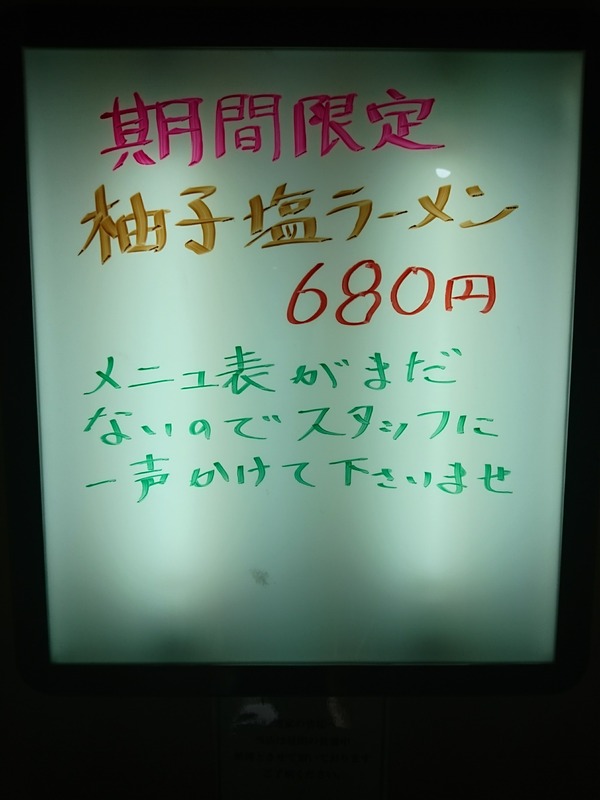 期間限定
柚子塩ラーメン
680円
メニュー表がまだ
ないのでスタッフに
一声かけて下さいませ